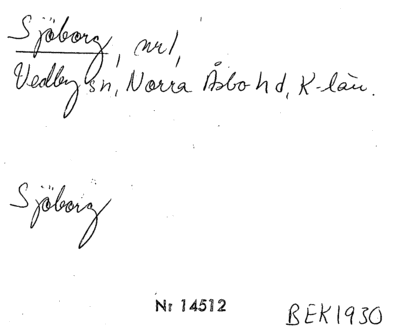 Sjöborg, nr 1,
Vedby sn, Norra Åsbo hd, K-län.
Sjöborg
Nr 14512
BEK1930